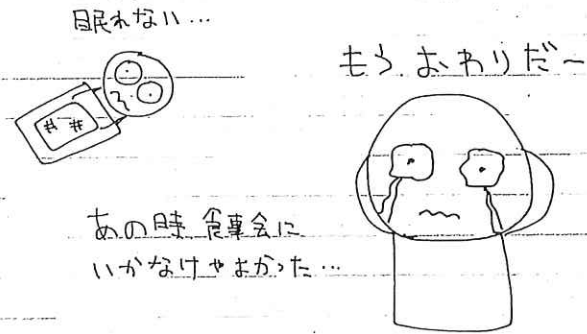 眠れない…
もう、おわりだ~
あの時、食事会に
いかなけやよかった…